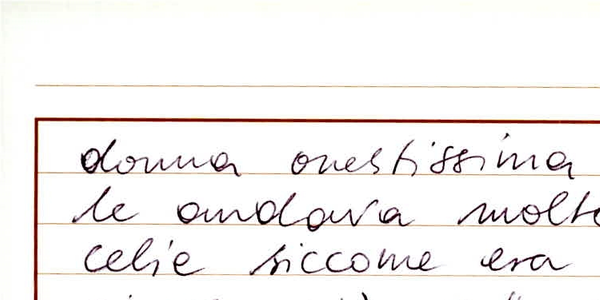 donna onestissima
le andava molte
celie siccome era